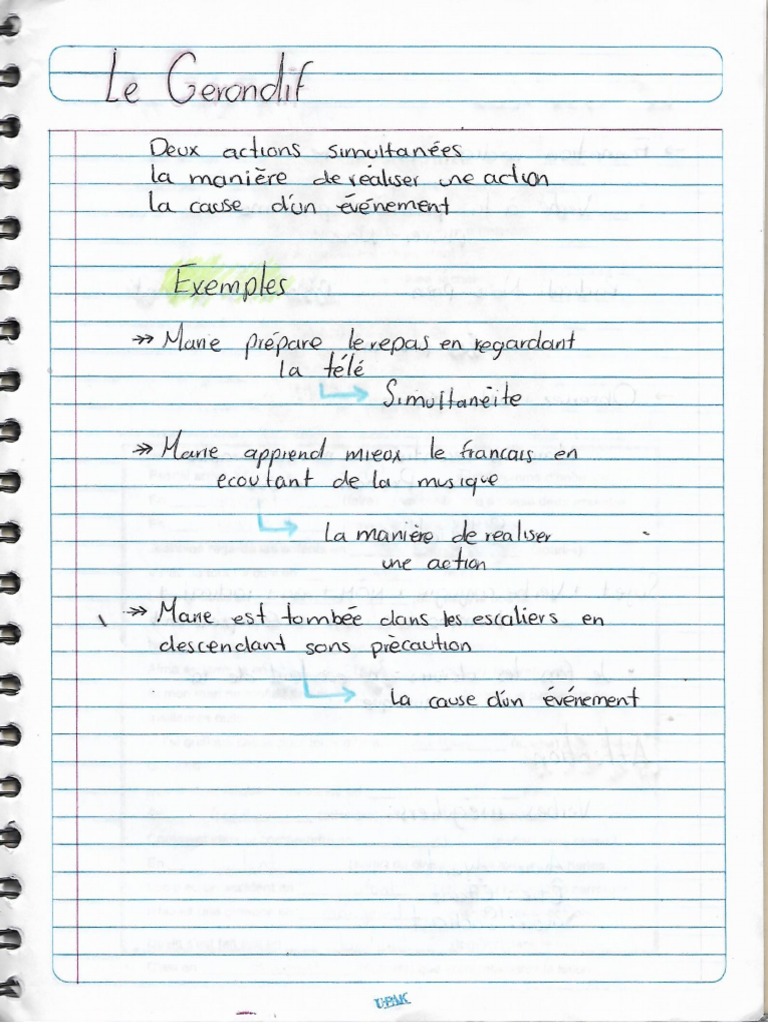 Le Gerondif
Deux actions simultanées
la manière de réaliser une action
la cause d'un événement
Exemples
→ Marie prépare le repas en regardant
la télé
Simultanèite
→ Marie apprend mieux le francais en
ecoutant de la musique
La manière de realiser
une action
→ Marie est tombée dans les escaliers en
descendant sans prècaution
la cause d'un événement
UPAK